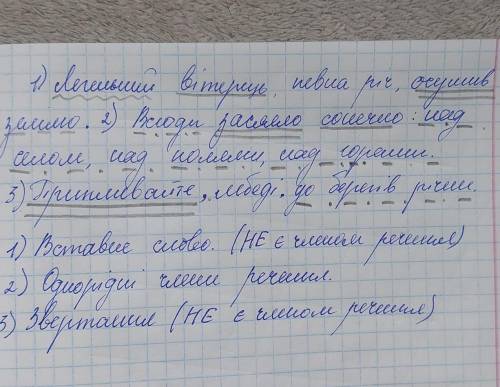 1) Легенький вітерець, певна річ, осушив
землю. 2) Всюди засяяло сонечко: над
селом, над полями, над горами.
3) Припливайте, лебеді, до берегів річки.
1) Вставне слово. (НЕ є членом речення)
2) Однорідні члени речення.
3) Звертання (НЕ є членом речення)